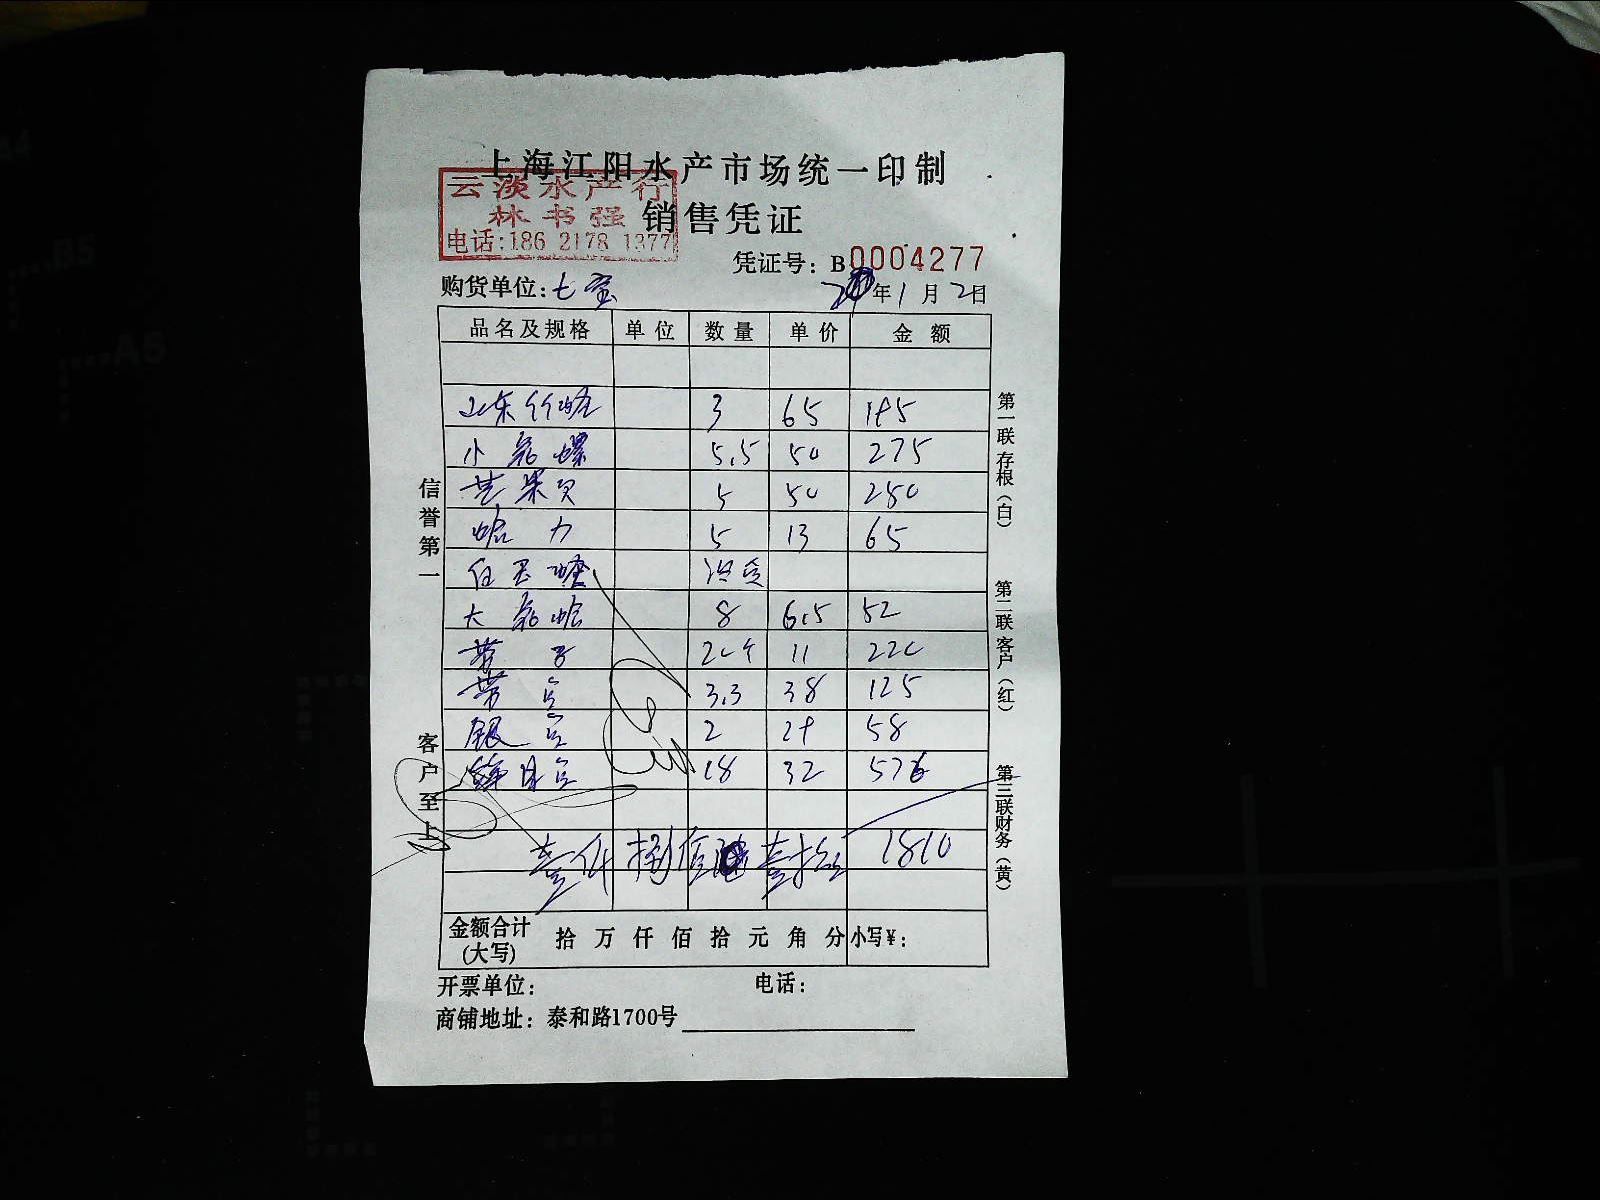 上海江阳水产市场统一印制
云淡水产行
林书强
电话:186 2178 1377
销售凭证
凭证号: B0004277
购货单位:七宝
年1月2日
品名及规格 单位 数量 单价 金额
山东竹蛏 3 65 195
小花螺 5.5 50 275
芒果贝 5 50 250
蛤力 5 13 65
大花蛤 8 6.5 52
带子 20个 11 220
带鱼 3.3 38 125
银鱼 2 29 58
18 32 576
壹仟捌佰 壹拾 1810
金额合计(大写) 拾万仟佰拾元角分 小写¥:
开票单位: 电话:
商铺地址: 泰和路1700号
信誉第一
客户至上
第一联存根(白)
第二联客户(红)
第三联财务(黄)